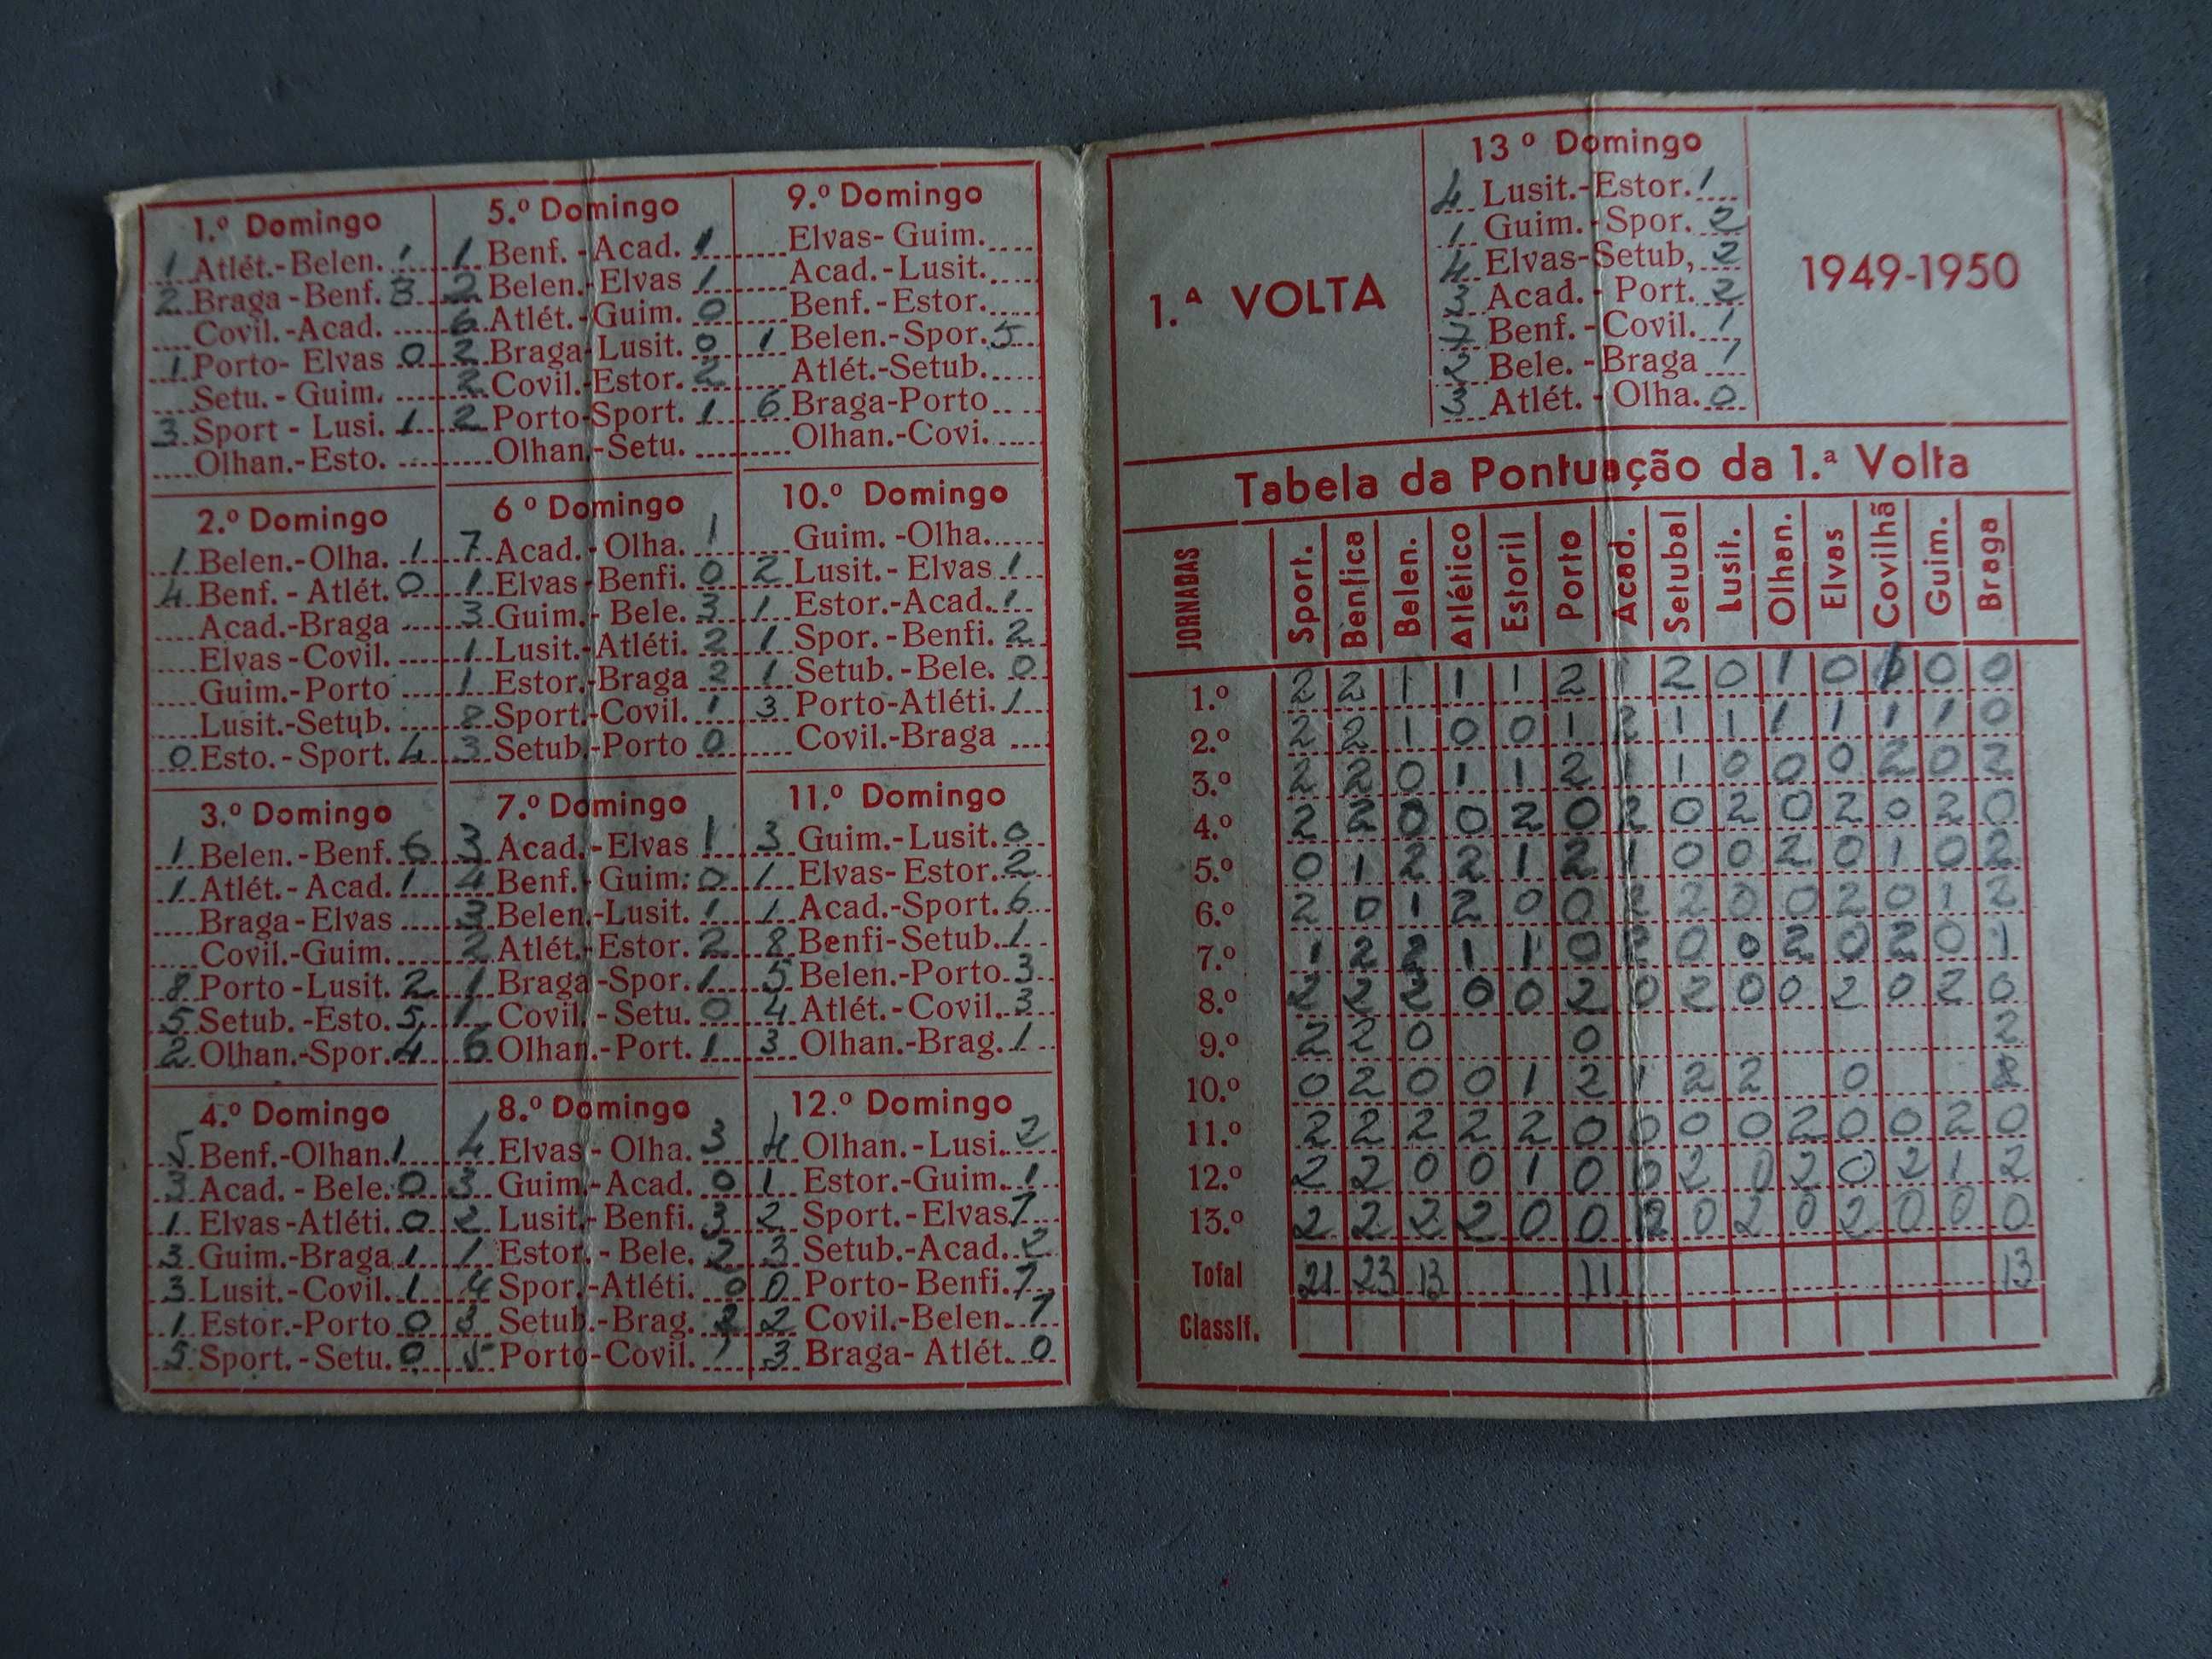 1.º Domingo
1 Atlét.-Belen. 1
2 Braga-Benf. 3
Covil.-Acad.
1 Porto-Elvas 0
Setu.-Guim.
3 Sport-Lusi. 1
Olhan.-Esto.
2.º Domingo
1 Belen.-Olha. 1
4 Benf.-Atlét. 0
Acad.-Braga
Elvas-Covil.
Guim.-Porto
Lusit.-Setub.
0 Esto.-Sport. 4
3.º Domingo
1 Belen.-Benf. 6
1 Atlét.-Acad. 1
Braga-Elvas
Covil.-Guim.
8 Porto-Lusit. 2
5 Setub.-Esto. 5
2 Olhan.-Spor. 4
4.º Domingo
5 Benf.-Olhan. 1
3 Acad.-Bele. 0
1 Elvas-Atléti. 0
3 Guim.-Braga 1
3 Lusit.-Covil. 1
1 Estor.-Porto 0
5 Sport.-Setu. 0
5.º Domingo
1 Benf.-Acad. 1
2 Belen.-Elvas 1
6 Atlét.-Guim. 0
2 Braga-Lusit. 0
2 Covil.-Estor. 2
2 Porto-Sport. 1
Olhan.-Setu.
6º Domingo
7 Acad.-Olha. 1
1 Elvas-Benfi. 0
3 Guim.-Bele. 3
1 Lusit.-Atléti. 2
1 Estor.-Braga 2
8 Sport.-Covil. 1
3 Setub.-Porto 0
7.º Domingo
3 Acad.-Elvas 1
4 Benf.-Guim. 0
3 Belen.-Lusit. 1
2 Atlét.-Estor. 2
1 Braga-Spor. 1
1 Covil.-Setu. 0
6 Olhan.-Port. 1
8.º Domingo
4 Elvas-Olha. 3
3 Guim.-Acad. 0
2 Lusit.-Benfi. 3
1 Estor.-Bele. 2
4 Spor.-Atléti. 0
3 Setub.-Brag.
5 Porto-Covil. 1
9.º Domingo
Elvas-Guim.
Acad.-Lusit.
Benf.-Estor.
1 Belen.-Spor. 5
Atlét.-Setub.
6 Braga-Porto
Olhan.-Covi.
10.º Domingo
Guim.-Olha.
2 Lusit.-Elvas 1
1 Estor.-Acad. 1
1 Spor.-Benfi. 2
1 Setub.-Bele. 0
3 Porto-Atléti. 1
Covil.-Braga
11.º Domingo
3 Guim.-Lusit. 0
1 Elvas-Estor. 2
1 Acad.-Sport. 6
8 Benfi-Setub. 1
5 Belen.-Porto 3
4 Atlét.-Covil. 3
3 Olhan.-Brag. 1
12.º Domingo
4 Olhan.-Lusi. 2
1 Estor.-Guim. 1
2 Sport.-Elvas 1
3 Setub.-Acad. 2
0 Porto-Benfi. 1
2 Covil.-Belen. 1
3 Braga-Atlét. 0
1.ª VOLTA
13º Domingo
4 Lusit.-Estor. 1
1 Guim.-Spor. 2
4 Elvas-Setub, 2
3 Acad.-Port. 2
Benf.-Covil. 1
2 Bele.-Braga 1
3 Atlét.-Olha. 0
1949-1950
Tabela da Pontuação da 1.ª Volta
JORNADAS Sport. Benfica Belen. Atlético Estoril Porto Acad. Setubal Lusit. Olhan. Elvas Covilhã Guim. Braga
1.º 2 2 1 1 1 2 1 2 0 1 0 1 0 0
2.º 2 2 1 0 0 1 2 1 1 1 1 1 1 0
3.º 2 2 0 1 1 2 1 1 0 0 0 2 0 2
4.º 2 2 0 0 2 0 2 0 2 0 2 0 2 0
5.º 0 1 2 2 1 2 1 0 0 2 0 1 0 2
6.º 2 0 1 2 0 0 2 2 0 0 2 0 1 2
7.º 1 2 2 1 1 0 2 0 0 2 0 2 0 1
8.º 2 2 2 0 0 2 0 2 0 0 2 0 2 0
9.º 2 2 0 0 2
10.º 0 2 0 0 1 2 1 2 2 0
11.º 2 2 2 2 2 0 0 0 0 2 0 0 2 0
12.º 2 2 0 0 1 0 0 2 0 2 0 2 1 2
13.º 2 2 2 2 0 0 2 0 2 0 2 0 0 0
Total 21 23 13 11 13
Classif.